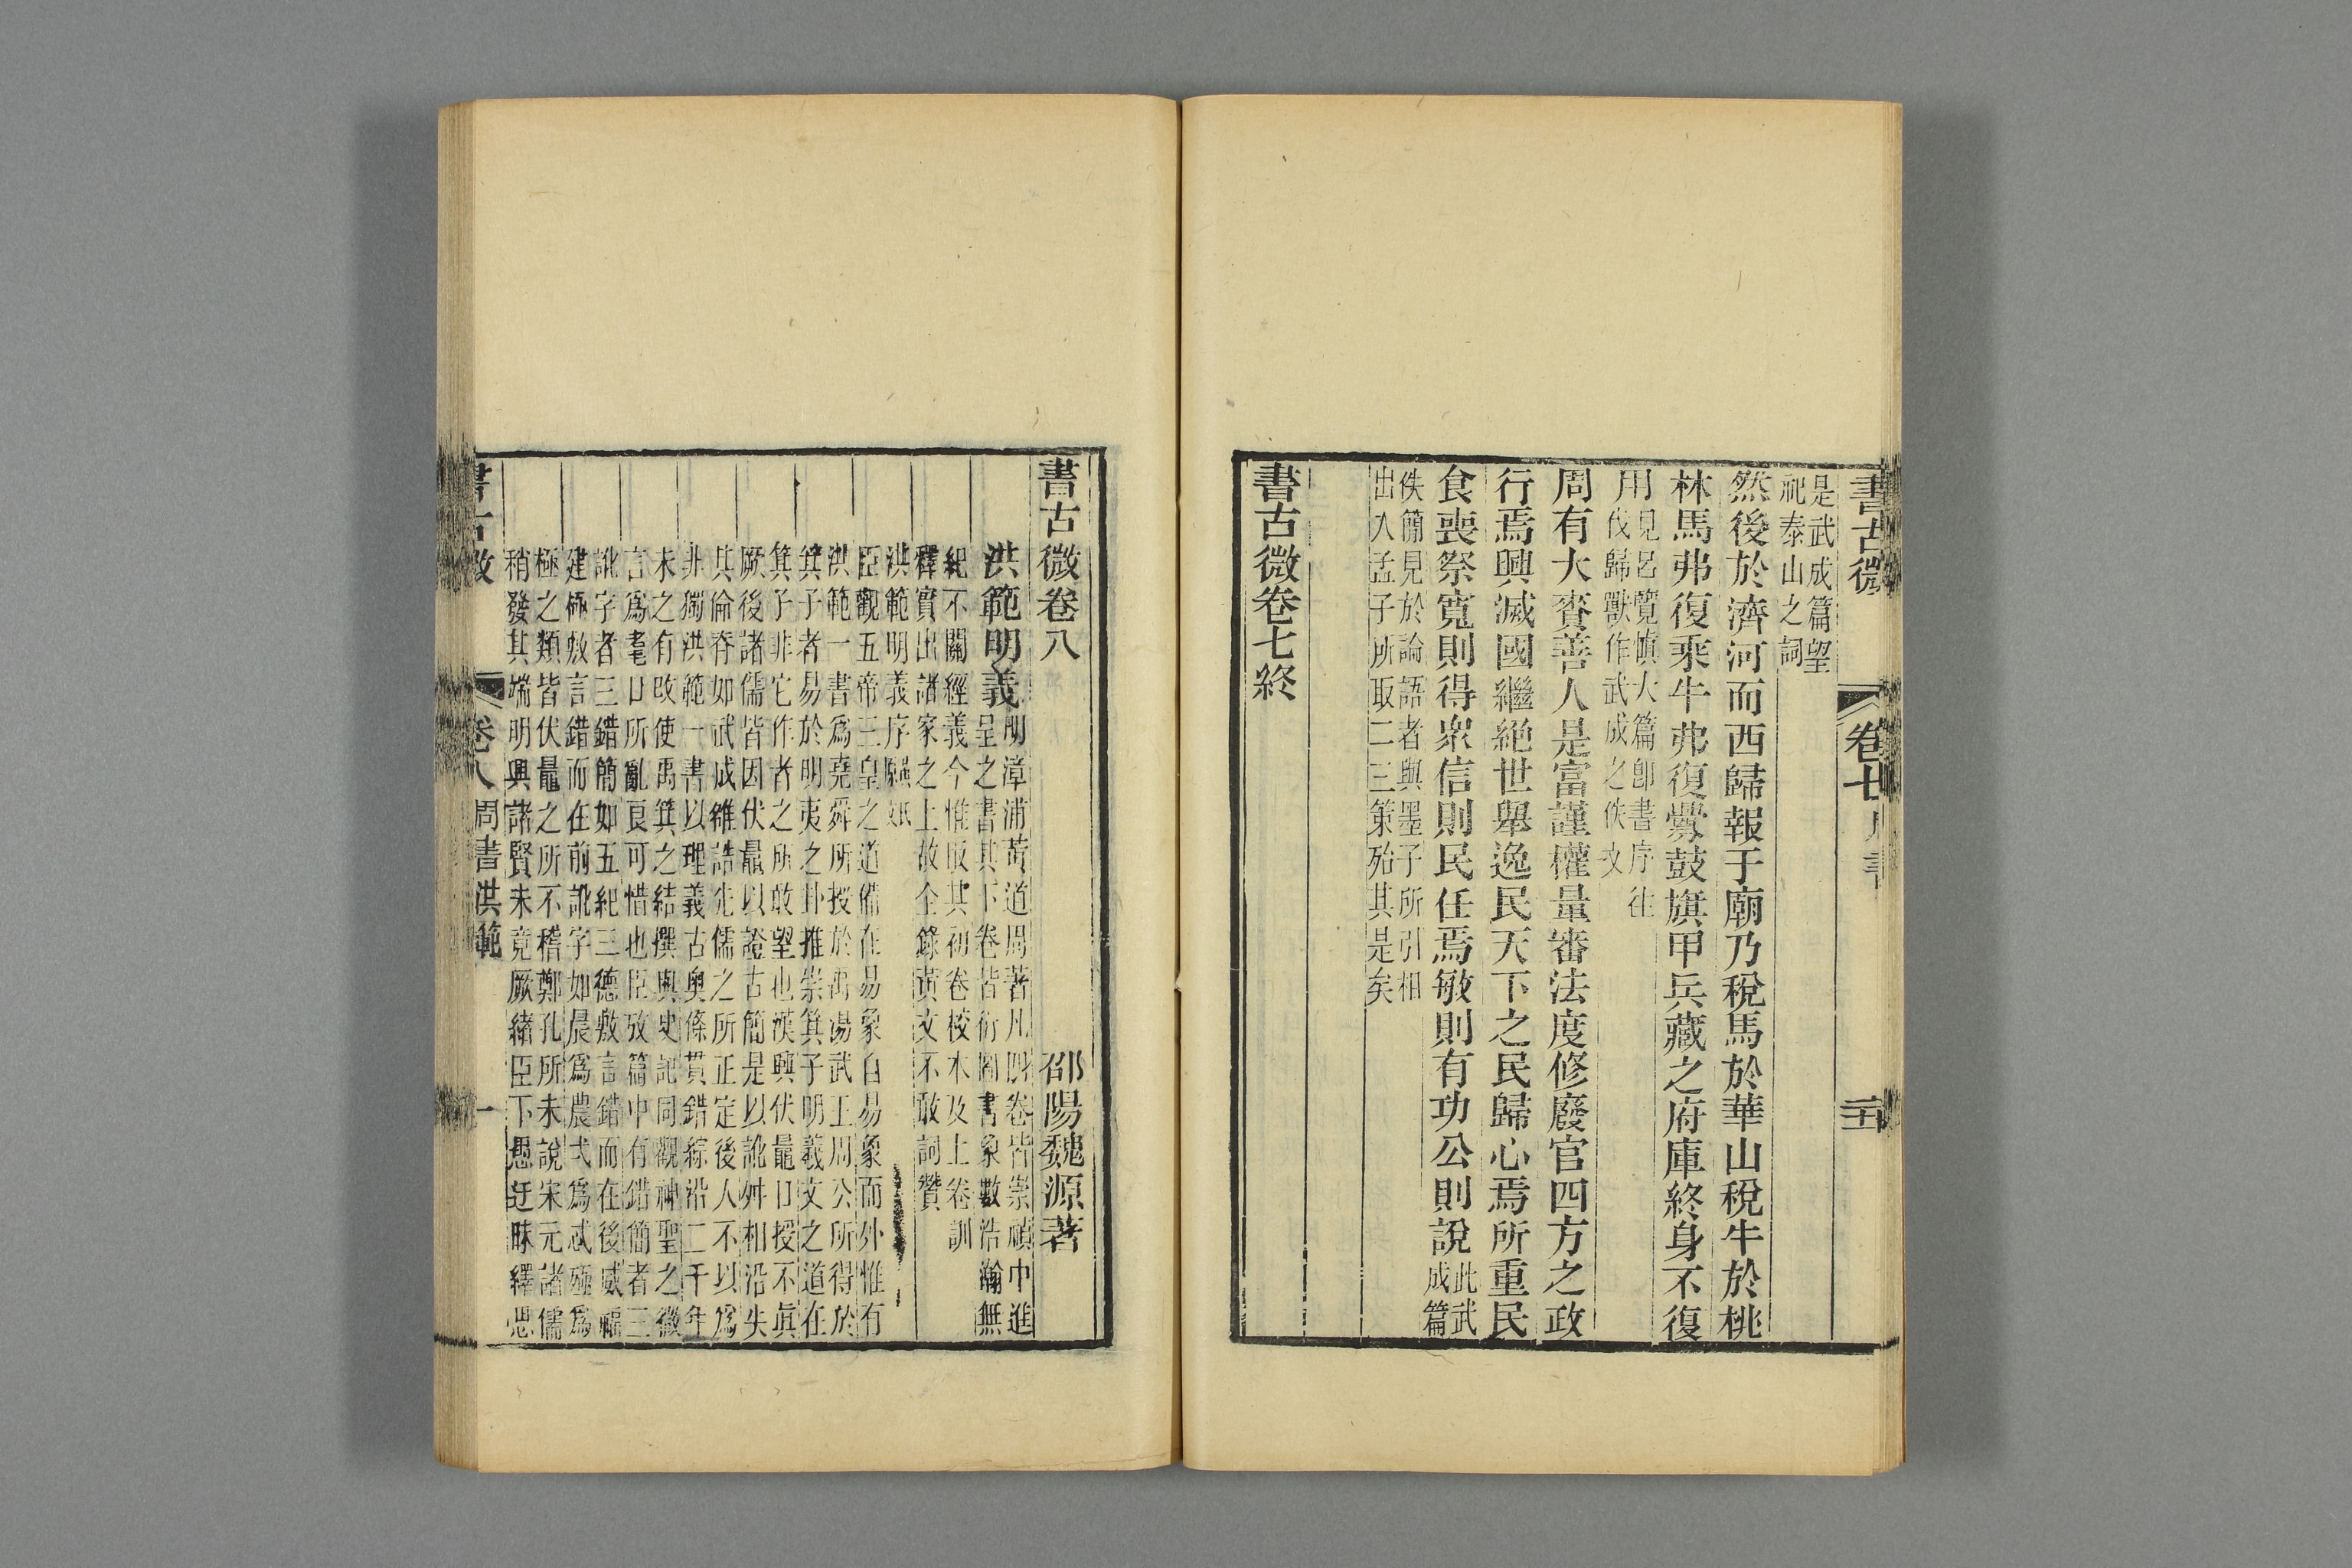 書古微
卷七
是武成篇望
祀泰山之詞
然後於濟河而西歸報于廟乃稅馬於華山稅牛於桃
林馬弗復乘牛弗復釁鼓旗甲兵藏之府庫終身不復
用見呂覽愼大篇卽書序往
伐歸獸作武成之佚文
周有大賚善人是富謹權量審法度修廢官四方之政
行焉興滅國繼絶世舉逸民天下之民歸心焉所重民
食喪祭寬則得衆信則民任焉敏則有功公則說此武
成篇
佚簡見於論語者與墨子所引相
出入孟子所取二三策殆其是矣
書古微卷七終
書古微卷八
邵陽魏源著
洪範明義明漳浦黃道周著凡四卷皆崇禎中進
呈之書其下卷皆衍圖書象數浩瀚無
紀不關經義今惟取其初卷校本及上卷訓
釋實出諸家之上故全錄黃文不敢詞贊
洪範明義序
臣觀五帝三皇之道備在易象自易象而外惟有
洪範一書爲堯舜所授於禹湯武王周公所得於
箕子者易於明夷之卦推崇箕子明羲文之道在
箕子非它作者之所敢望也漢興伏鼂口授不眞
厥後諸儒皆因伏鼂以證古簡是以訛舛相沿失
其倫脊如武成雒誥先儒之所正定後人不以爲
非獨洪範一書以理義古奧條貫錯綜沿二千年
未之有改使禹箕之結撰與史記同觀神聖之微
言爲耄口所亂良可惜也臣攷篇中有錯簡者三
訛字者三錯簡如五紀三德敷言錯而在後威福
建極敷言錯而在前訛字如晨爲農弌爲忒殛爲
極之類皆伏鼂之所不稽鄭孔所未說宋元諸儒
稍發其端明興諸賢未竟厥緒臣下愚迂昧繹思
書古微
卷八
周書洪範
一